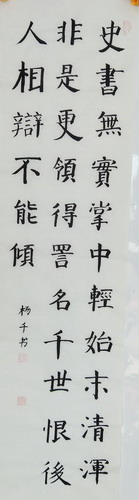 史書無實掌中輕始末清渾
非是更領得詈名千世恨後
人相辯不能傾
楊千书